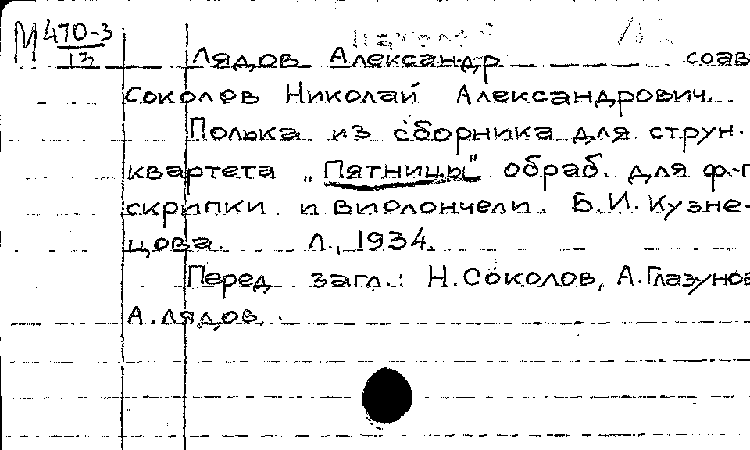 М 470-3
13
Лядов Александр соав
Соколов Николай Александрович.
Полька из сборника для струн.
квартета „Пятницы" обраб. для ф-п
скрипки и виолончели. Б.И. Кузне-
цова. Л., 1934.
Перед загл.: Н. Соколов, А. Глазунов
А. Лядов.